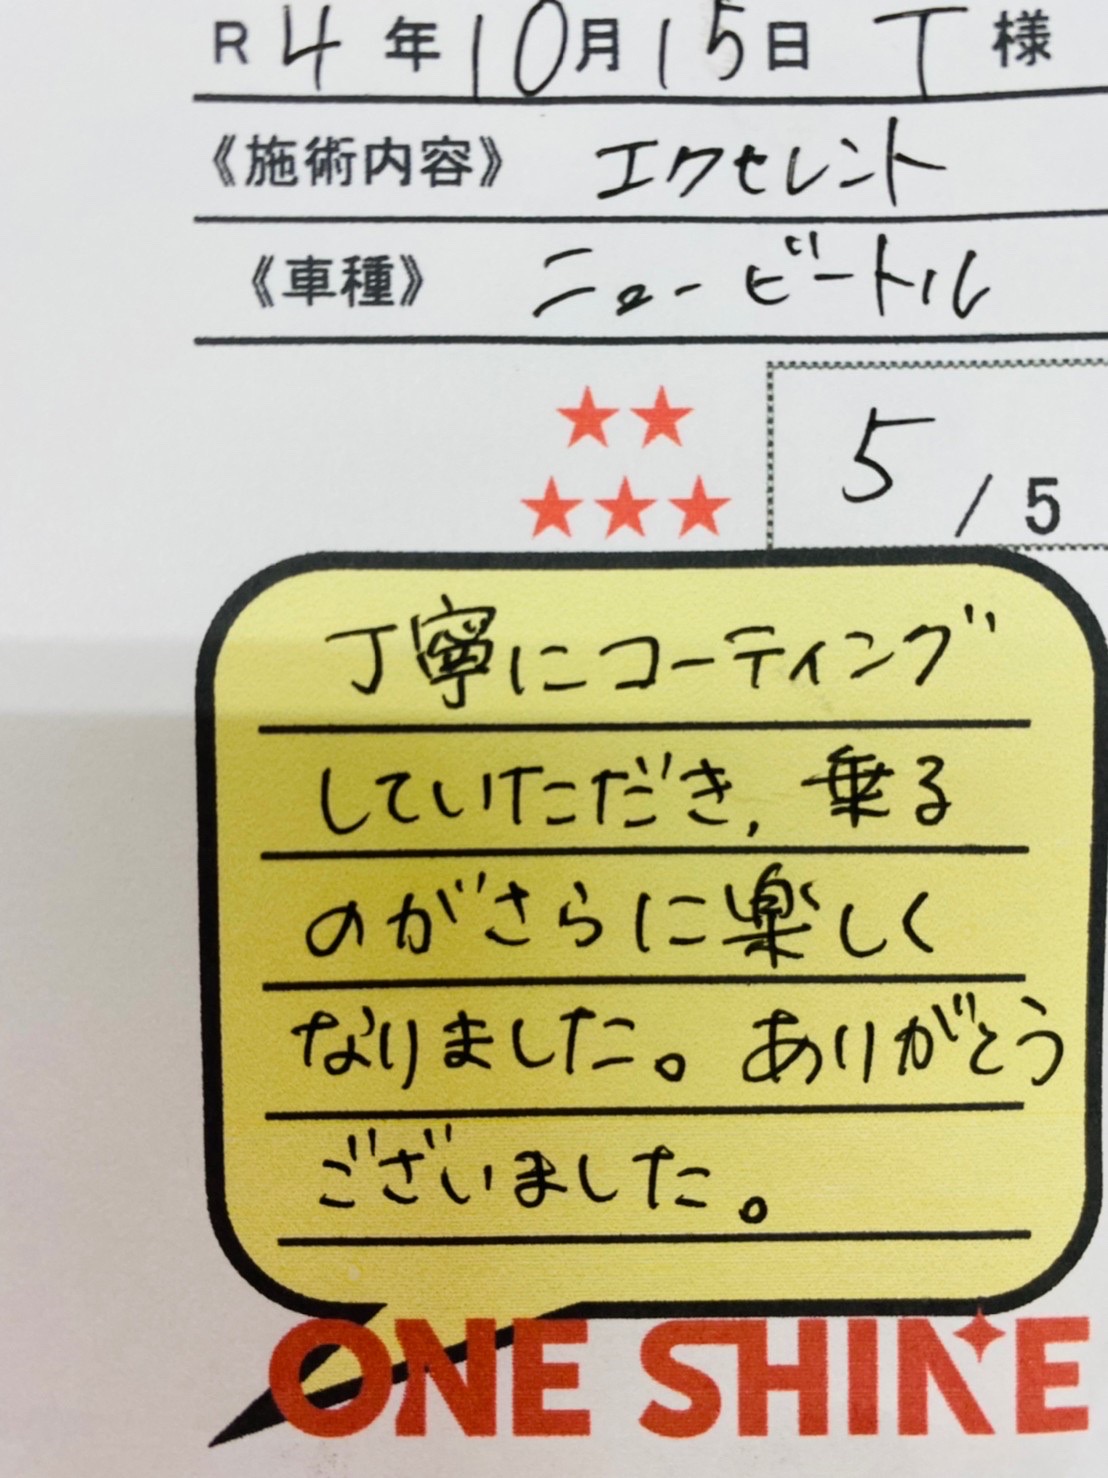 R 4 年 10 月 15 日 T 様
《施術内容》 エクセレント
《車種》 ニュービートル
★★
★★★
5 / 5
丁寧にコーティング
していただき、乗る
のがさらに楽しく
なりました。ありがとう
ございました。
ONE SHINE